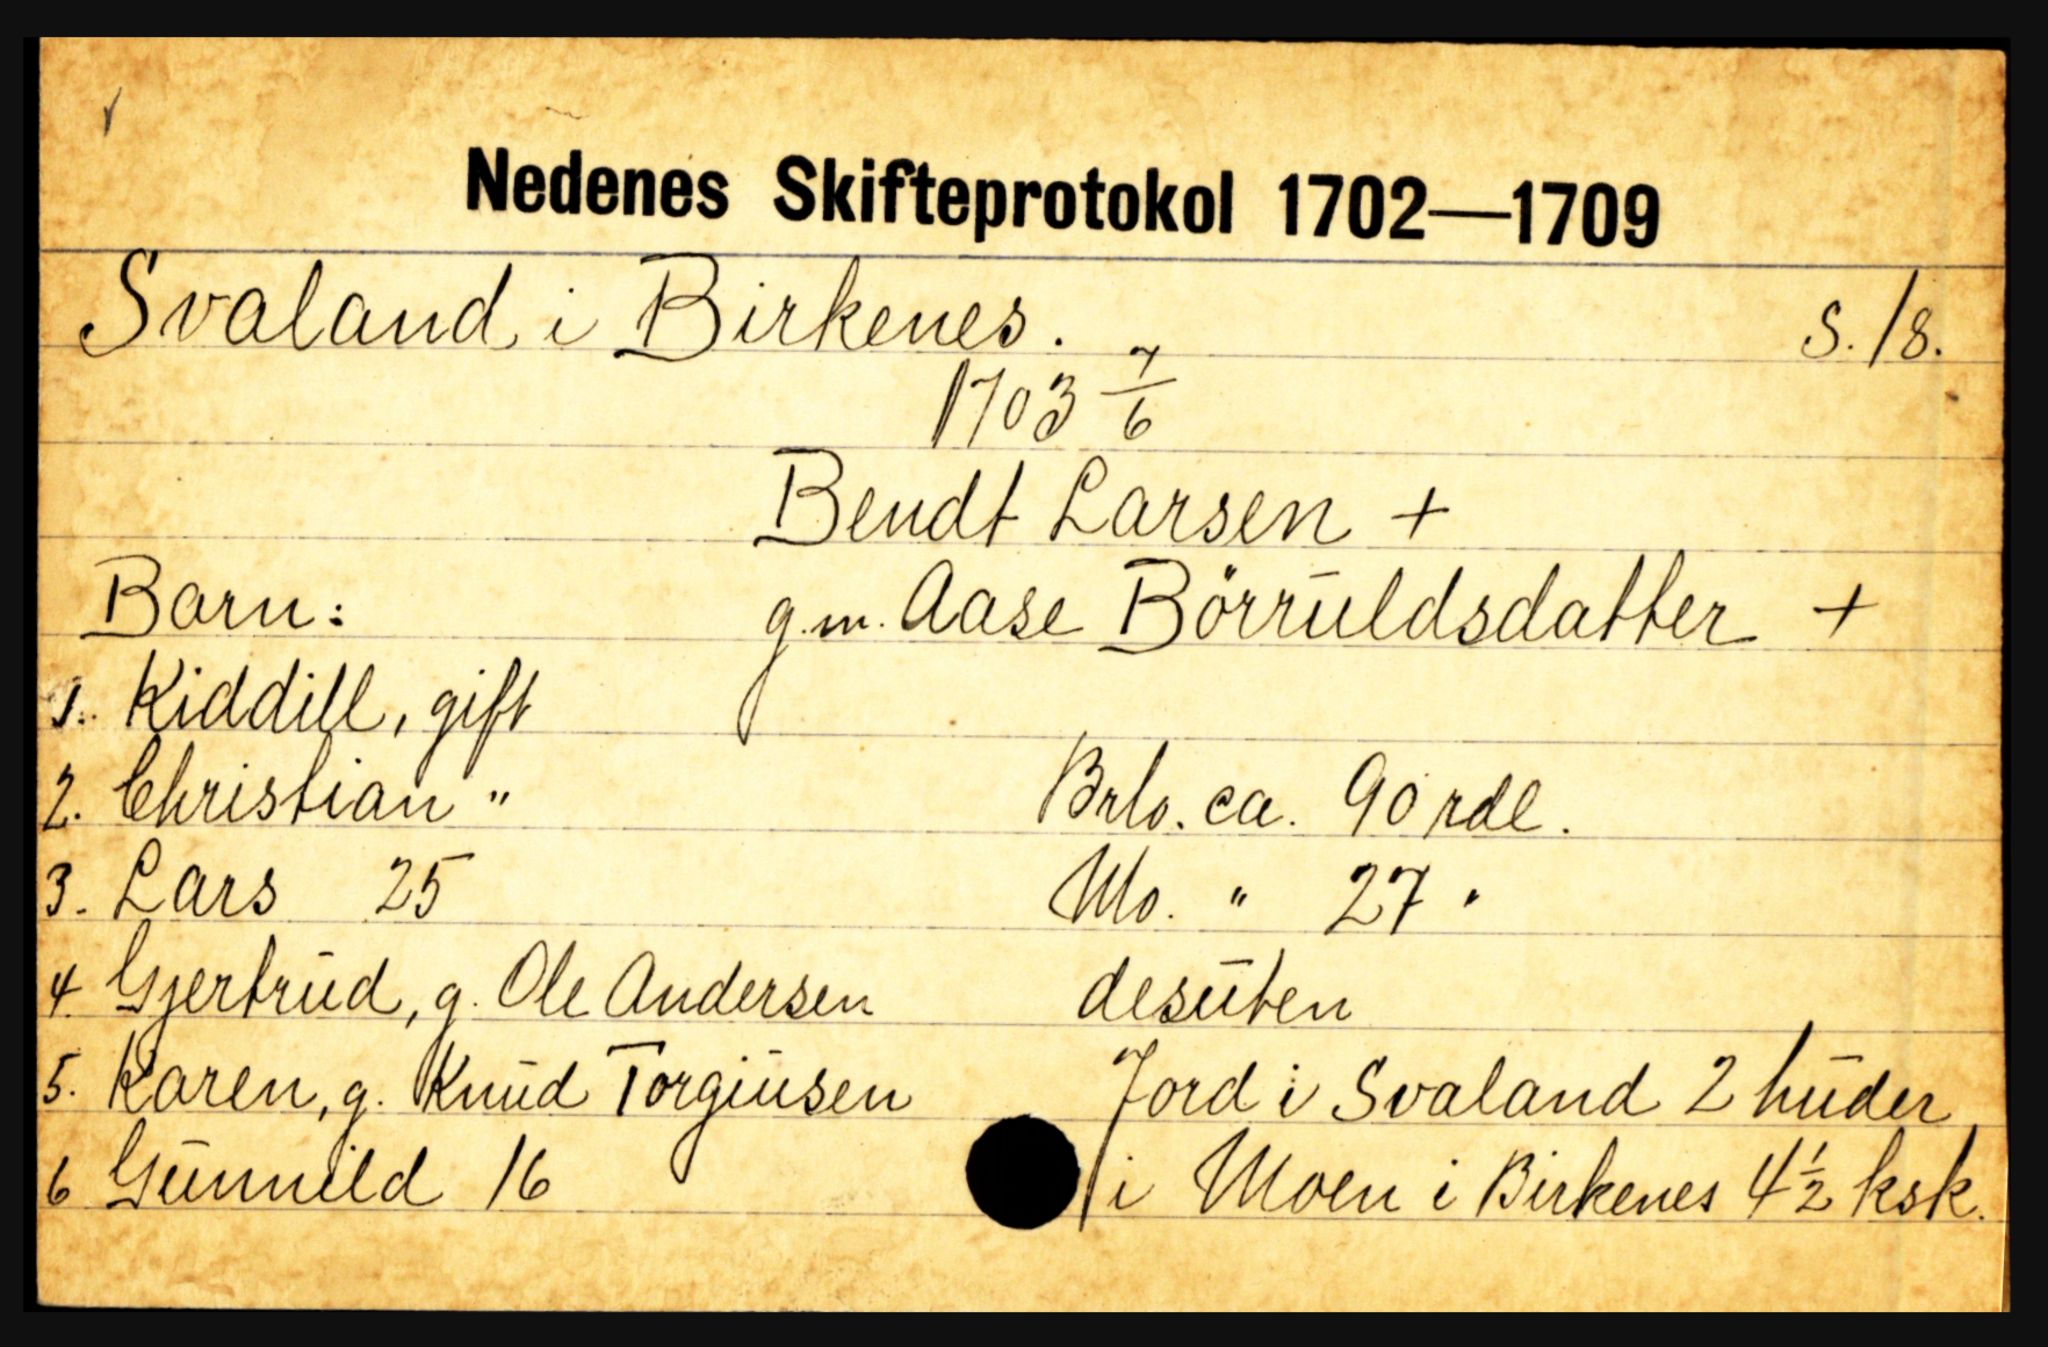 Nedenes Skifteprotokol 1702—1709
Svaland i Birkenes. S. 18.
1703 7/6
Bendt Larsen +
Barn: g.m. Aase Börruldsdatter +
1. Kiddill, gift
2. Christian " Brlo. ca. 90 rdl.
3. Lars 25 Mo. " 27 "
4. Gjertrud, g. Ole Andersen desuten
5. Karen, g. Knud Torgiusen Jord i Svaland 2 huder
6 Gunnild 16 i Moen i Birkenes 4½ ksk.